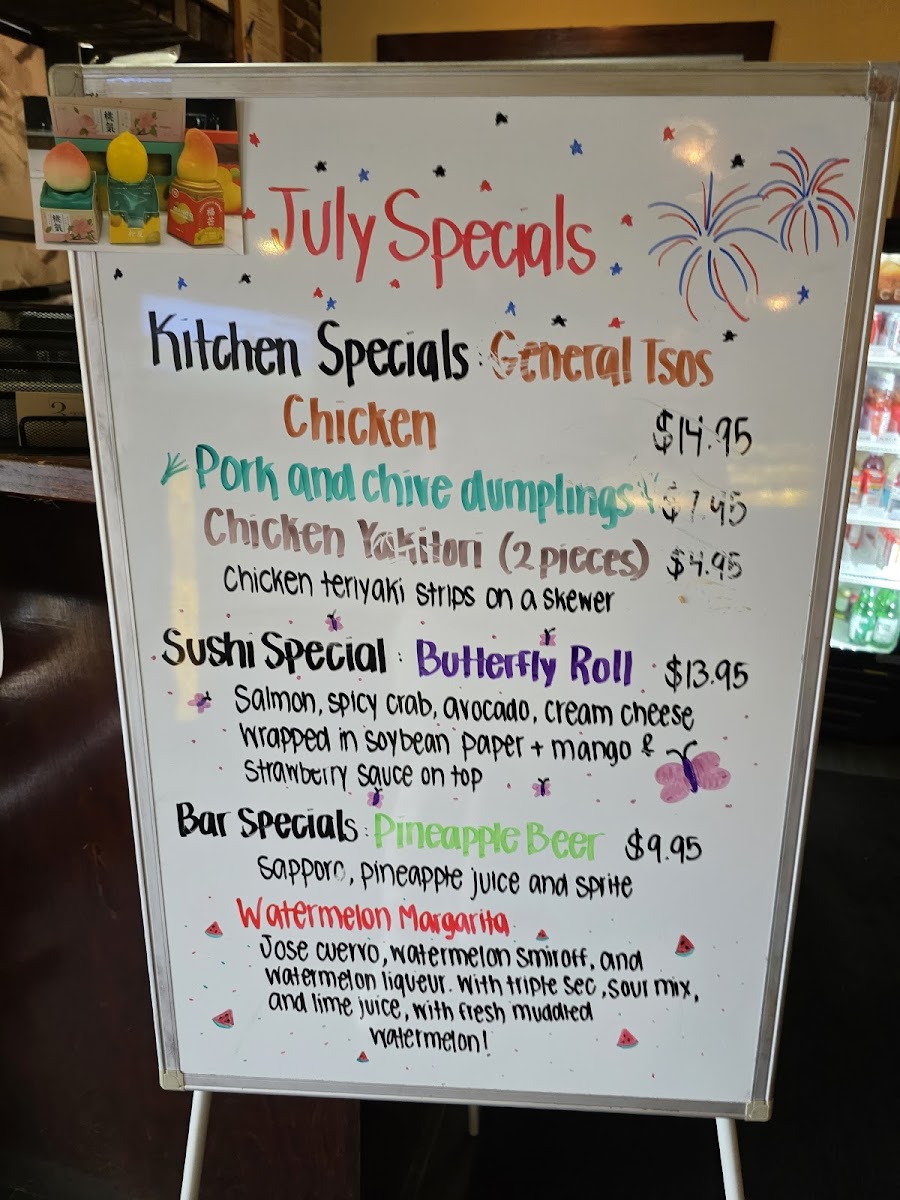 July Specials
Kitchen Specials: General Tsos
Chicken $14.95
Pork and chive dumplings $7.45
Chicken Yakitori (2 pieces) $4.95
Chicken teriyaki strips on a skewer
Sushi Special: Butterfly Roll $13.95
Salmon, spicy crab, avocado, cream cheese
wrapped in soybean paper + mango &
strawberry sauce on top
Bar Specials: Pineapple Beer $9.95
Sapporo, pineapple juice and sprite
Watermelon Margarita
Jose cuervo, watermelon smiroff, and
watermelon liqueur. With triple sec, sour mix,
and lime juice, with fresh muddled
watermelon!